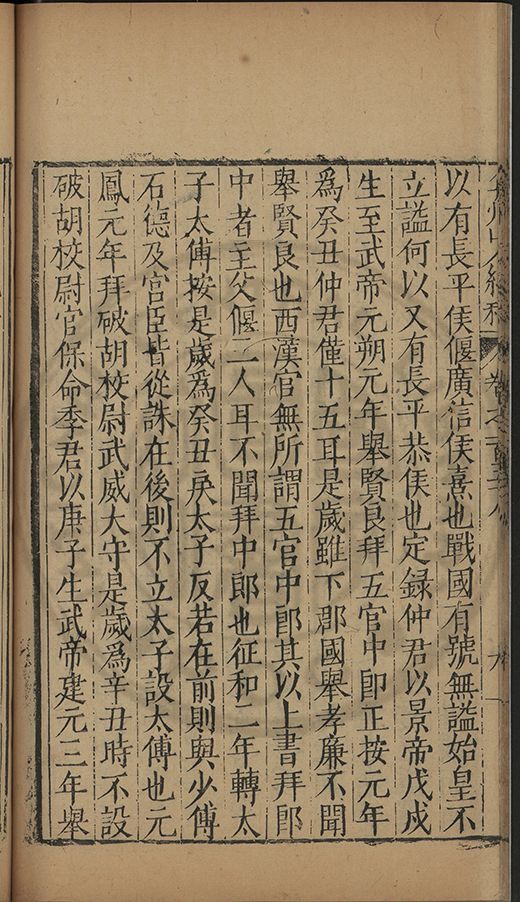 以有長平侯偃廣信侯熹也戰國有號無謚始皇不
立謚何以又有長平恭侯也定錄仲君以景帝戊戌
生至武帝元朔元年舉賢良拜五官中郎正按元年
為癸丑仲君僅十五耳是歲雖下郡國舉孝廉不聞
舉賢良也西漢官無所謂五官中郎其以上書拜郎
中者主父偃二人耳不聞拜中郎也征和二年轉太
子太傅按是歲為癸丑戾太子反若在前則與少傅
石德及官臣皆從誅在後則不立太子設太傅也元
鳳元年拜破胡校尉武威大守是歲為辛丑時不設
破胡校尉官保命季君以庚子生武帝建元三年舉